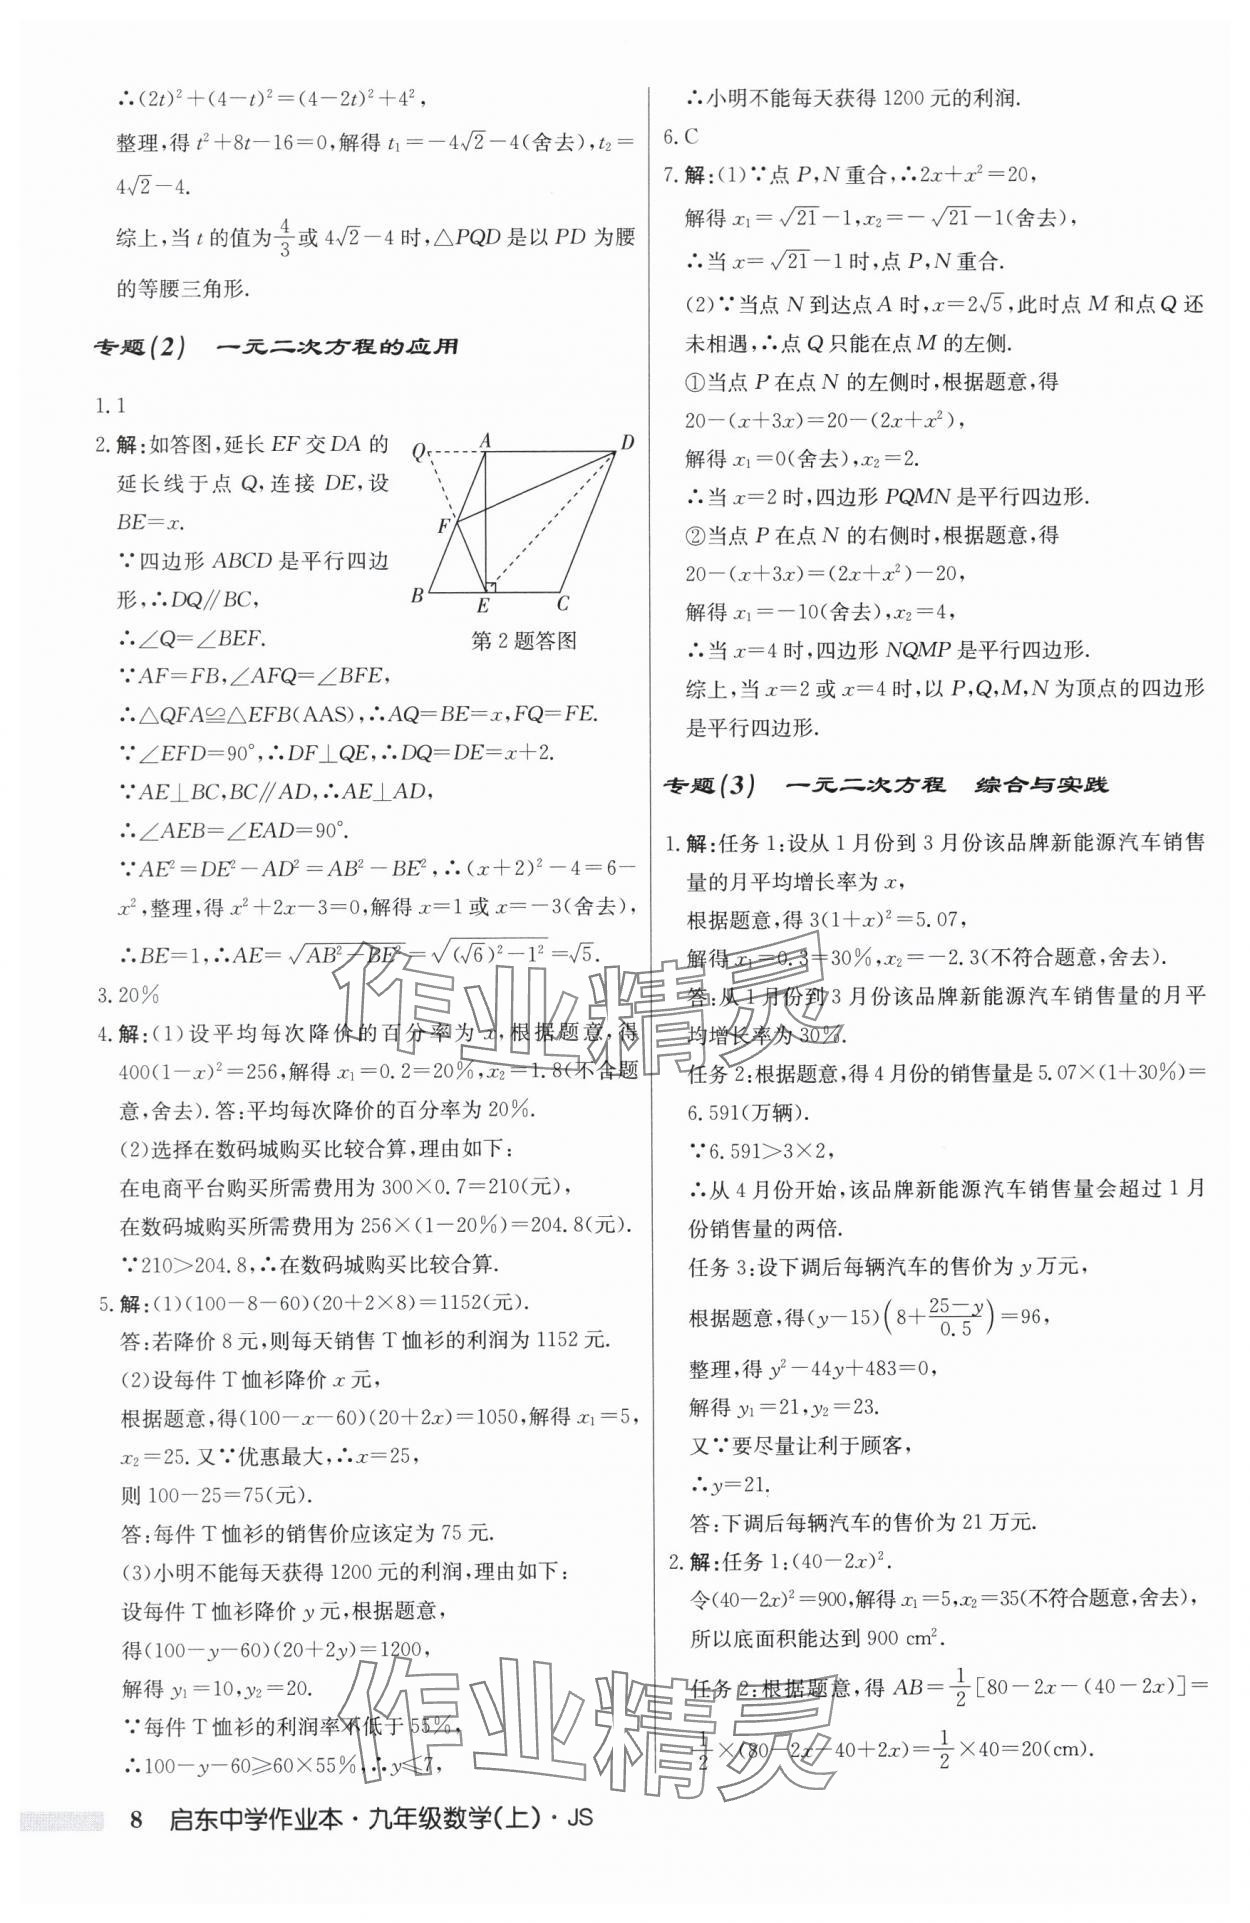 ∴(2t)²+(4－t)²=(4－2t)²+4²,
整理,得 t²+8t－16=0,解得 t₁=－4√2－4(舍去),t₂=
4√2－4.
综上,当 t 的值为4/3或 4√2－4 时,△PQD 是以 PD 为腰
的等腰三角形.
专题(2)　一元二次方程的应用
1. 1
2. 解:如答图,延长 EF 交 DA 的
延长线于点 Q,连接 DE,设
BE=x.
∵四边形 ABCD 是平行四边
形,∴DQ∥BC,
∴∠Q=∠BEF.
Q A D F B E C
第 2 题答图
∵AF=FB,∠AFQ=∠BFE,
∴△QFA≌△EFB(AAS),∴AQ=BE=x,FQ=FE.
∵∠EFD=90°,∴DF⊥QE,∴DQ=DE=x+2.
∵AE⊥BC,BC∥AD,∴AE⊥AD,
∴∠AEB=∠EAD=90°.
∵AE²=DE²－AD²=AB²－BE²,∴(x+2)²－4=6－
x²,整理,得 x²+2x－3=0,解得 x=1 或 x=－3(舍去),
∴BE=1,∴AE=√(AB²－BE²)=√((√6)²－1²)=√5.
3. 20%
4. 解:(1)设平均每次降价的百分率为 x,根据题意,得
400(1－x)²=256,解得 x₁=0.2=20%,x₂=1.8(不合题
意,舍去). 答:平均每次降价的百分率为 20%.
(2)选择在数码城购买比较合算,理由如下:
在电商平台购买所需费用为 300×0.7=210(元),
在数码城购买所需费用为 256×(1－20%)=204.8(元).
∵210>204.8,∴在数码城购买比较合算.
5. 解:(1)(100－8－60)(20+2×8)=1152(元).
答:若降价 8 元,则每天销售 T 恤衫的利润为 1152 元.
(2)设每件 T 恤衫降价 x 元,
根据题意,得(100－x－60)(20+2x)=1050,解得 x₁=5,
x₂=25. 又∵优惠最大,∴x=25,
则 100－25=75(元).
答:每件 T 恤衫的销售价应该定为 75 元.
(3)小明不能每天获得 1200 元的利润,理由如下:
设每件 T 恤衫降价 y 元,根据题意,
得(100－y－60)(20+2y)=1200,
解得 y₁=10,y₂=20.
∵每件 T 恤衫的利润率不低于 55%,
∴100－y－60≥60×55%,∴y≤7,
∴小明不能每天获得 1200 元的利润.
6. C
7. 解:(1)∵点 P,N 重合,∴2x+x²=20,
解得 x₁=√21－1,x₂=－√21－1(舍去),
∴当 x=√21－1 时,点 P,N 重合.
(2)∵当点 N 到达点 A 时,x=2√5,此时点 M 和点 Q 还
未相遇,∴点 Q 只能在点 M 的左侧.
①当点 P 在点 N 的左侧时,根据题意,得
20－(x+3x)=20－(2x+x²),
解得 x₁=0(舍去),x₂=2.
∴当 x=2 时,四边形 PQMN 是平行四边形.
②当点 P 在点 N 的右侧时,根据题意,得
20－(x+3x)=(2x+x²)－20,
解得 x₁=－10(舍去),x₂=4,
∴当 x=4 时,四边形 NQMP 是平行四边形.
综上,当 x=2 或 x=4 时,以 P,Q,M,N 为顶点的四边形
是平行四边形.
专题(3)　一元二次方程　综合与实践
1. 解:任务 1:设从 1 月份到 3 月份该品牌新能源汽车销售
量的月平均增长率为 x,
根据题意,得 3(1+x)²=5.07,
解得 x₁=0.3=30%,x₂=－2.3(不符合题意,舍去).
答:从 1 月份到 3 月份该品牌新能源汽车销售量的月平
均增长率为 30%.
任务 2:根据题意,得 4 月份的销售量是 5.07×(1+30%)=
6.591(万辆).
∵6.591>3×2,
∴从 4 月份开始,该品牌新能源汽车销售量会超过 1 月
份销售量的两倍.
任务 3:设下调后每辆汽车的售价为 y 万元,
根据题意,得(y－15)(8+(25－y)/0.5)=96,
整理,得 y²－44y+483=0,
解得 y₁=21,y₂=23.
又∵要尽量让利于顾客,
∴y=21.
答:下调后每辆汽车的售价为 21 万元.
2. 解:任务 1:(40－2x)².
令(40－2x)²=900,解得 x₁=5,x₂=35(不符合题意,舍去),
所以底面积能达到 900 cm².
任务 2:根据题意,得 AB=1/2[80－2x－(40－2x)]=
1/2×(80－2x－40+2x)=1/2×40=20(cm).
作业精灵
作业精灵
8　启东中学作业本·九年级数学(上)·JS